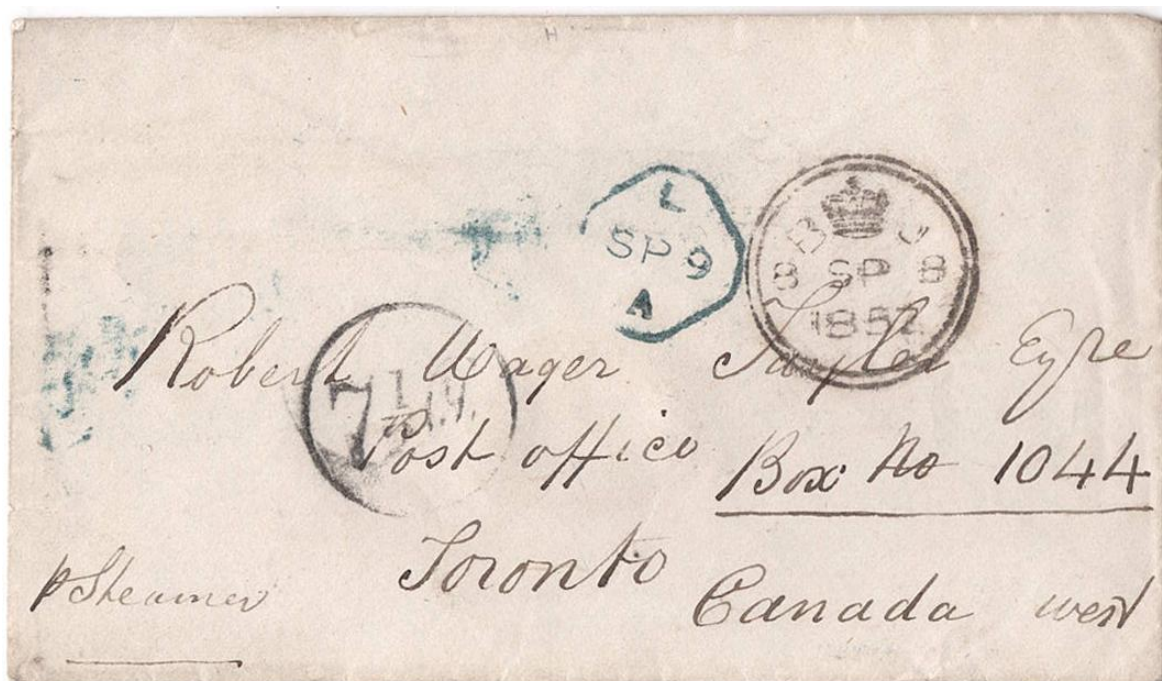 H
L
SP 9
A
B J
8 SP 8
1857
Robert Wager Tayler Eyre
7½
Post office Box No 1044
Toronto Canada west
p Steamer